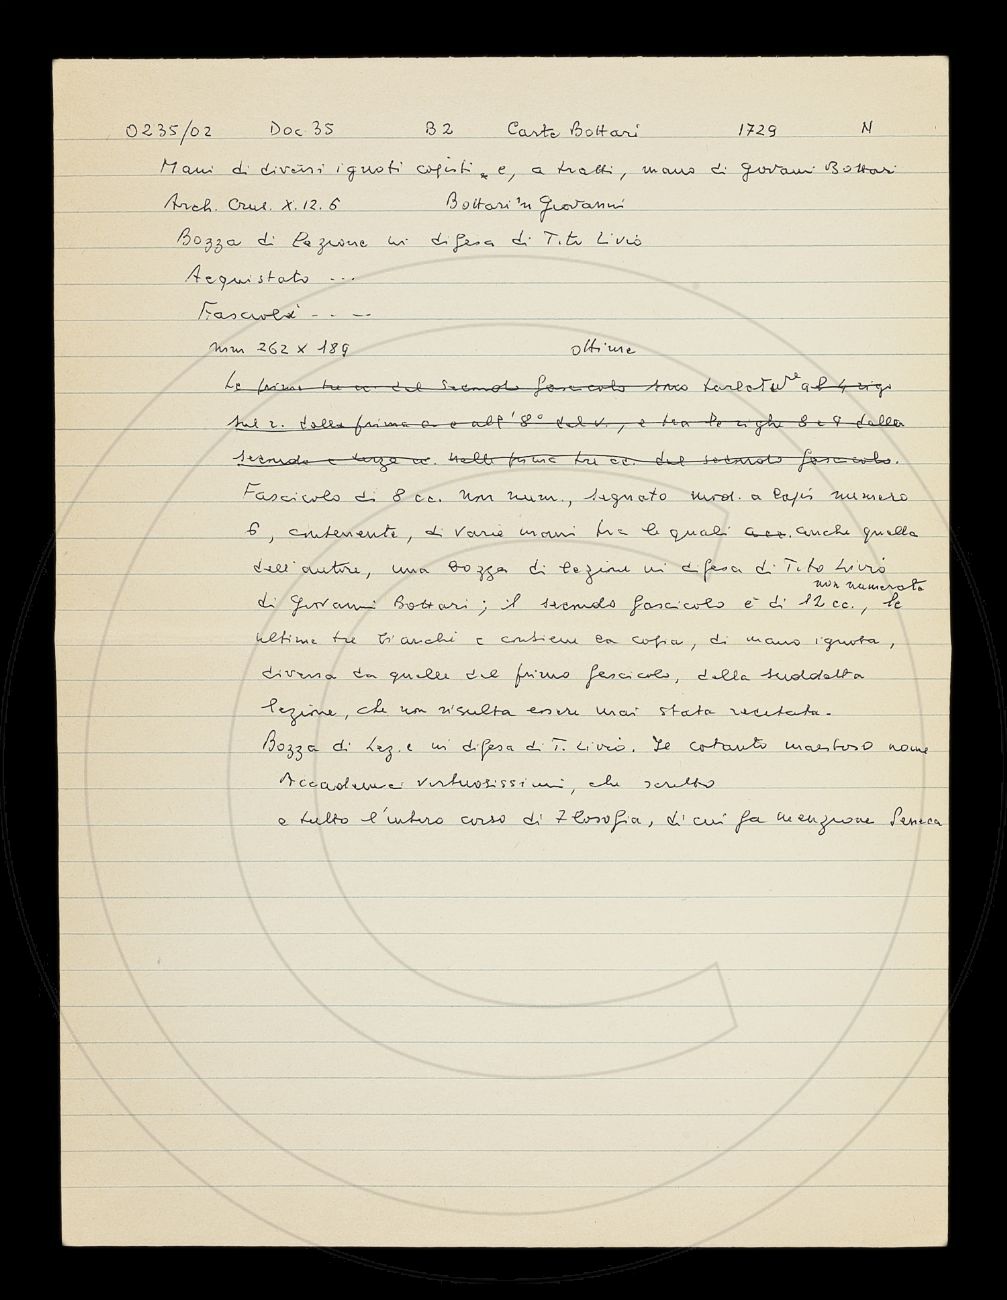 0235/02 Doc 35 B2 Carte Bottari 1729 N
Mani di diversi ignoti copisti e, a tratti, mano di Giovanni Bottari
Arch. Crus. X. 12. 6 Bottari Giovanni
Bozza di lezione in difesa di Tito Livio
Acquistato ---
Fascicoli ----
mm 262 x 189 ottimo
Le prime tre cc. del secondo fascicolo sono tarlate al 4 rigo
sul r. della prima c. e all'8° del v., e tra le righe 8 e 9 della
seconda e terza cc. nelle prime tre cc. del secondo fascicolo.
Fascicolo di 8 cc. non num., segnato mod. a lapis numero
6, contenente, di varie mani tra le quali anche quella
dell'autore, una bozza di lezione in difesa di Tito Livio
non numerate
di Giovanni Bottari; il secondo fascicolo è di 12 cc., le
ultime tre bianche e contiene la copia, di mano ignota,
diversa da quelle del primo fascicolo, della suddetta
lezione, che non risulta essere mai stata recitata.
Bozza di Lez.e in difesa di T. Livio. Se cotanto maestoso nome
Accademici virtuosissimi, che scelto
e tutto l'intero corso di Filosofia, di cui fa menzione Seneca